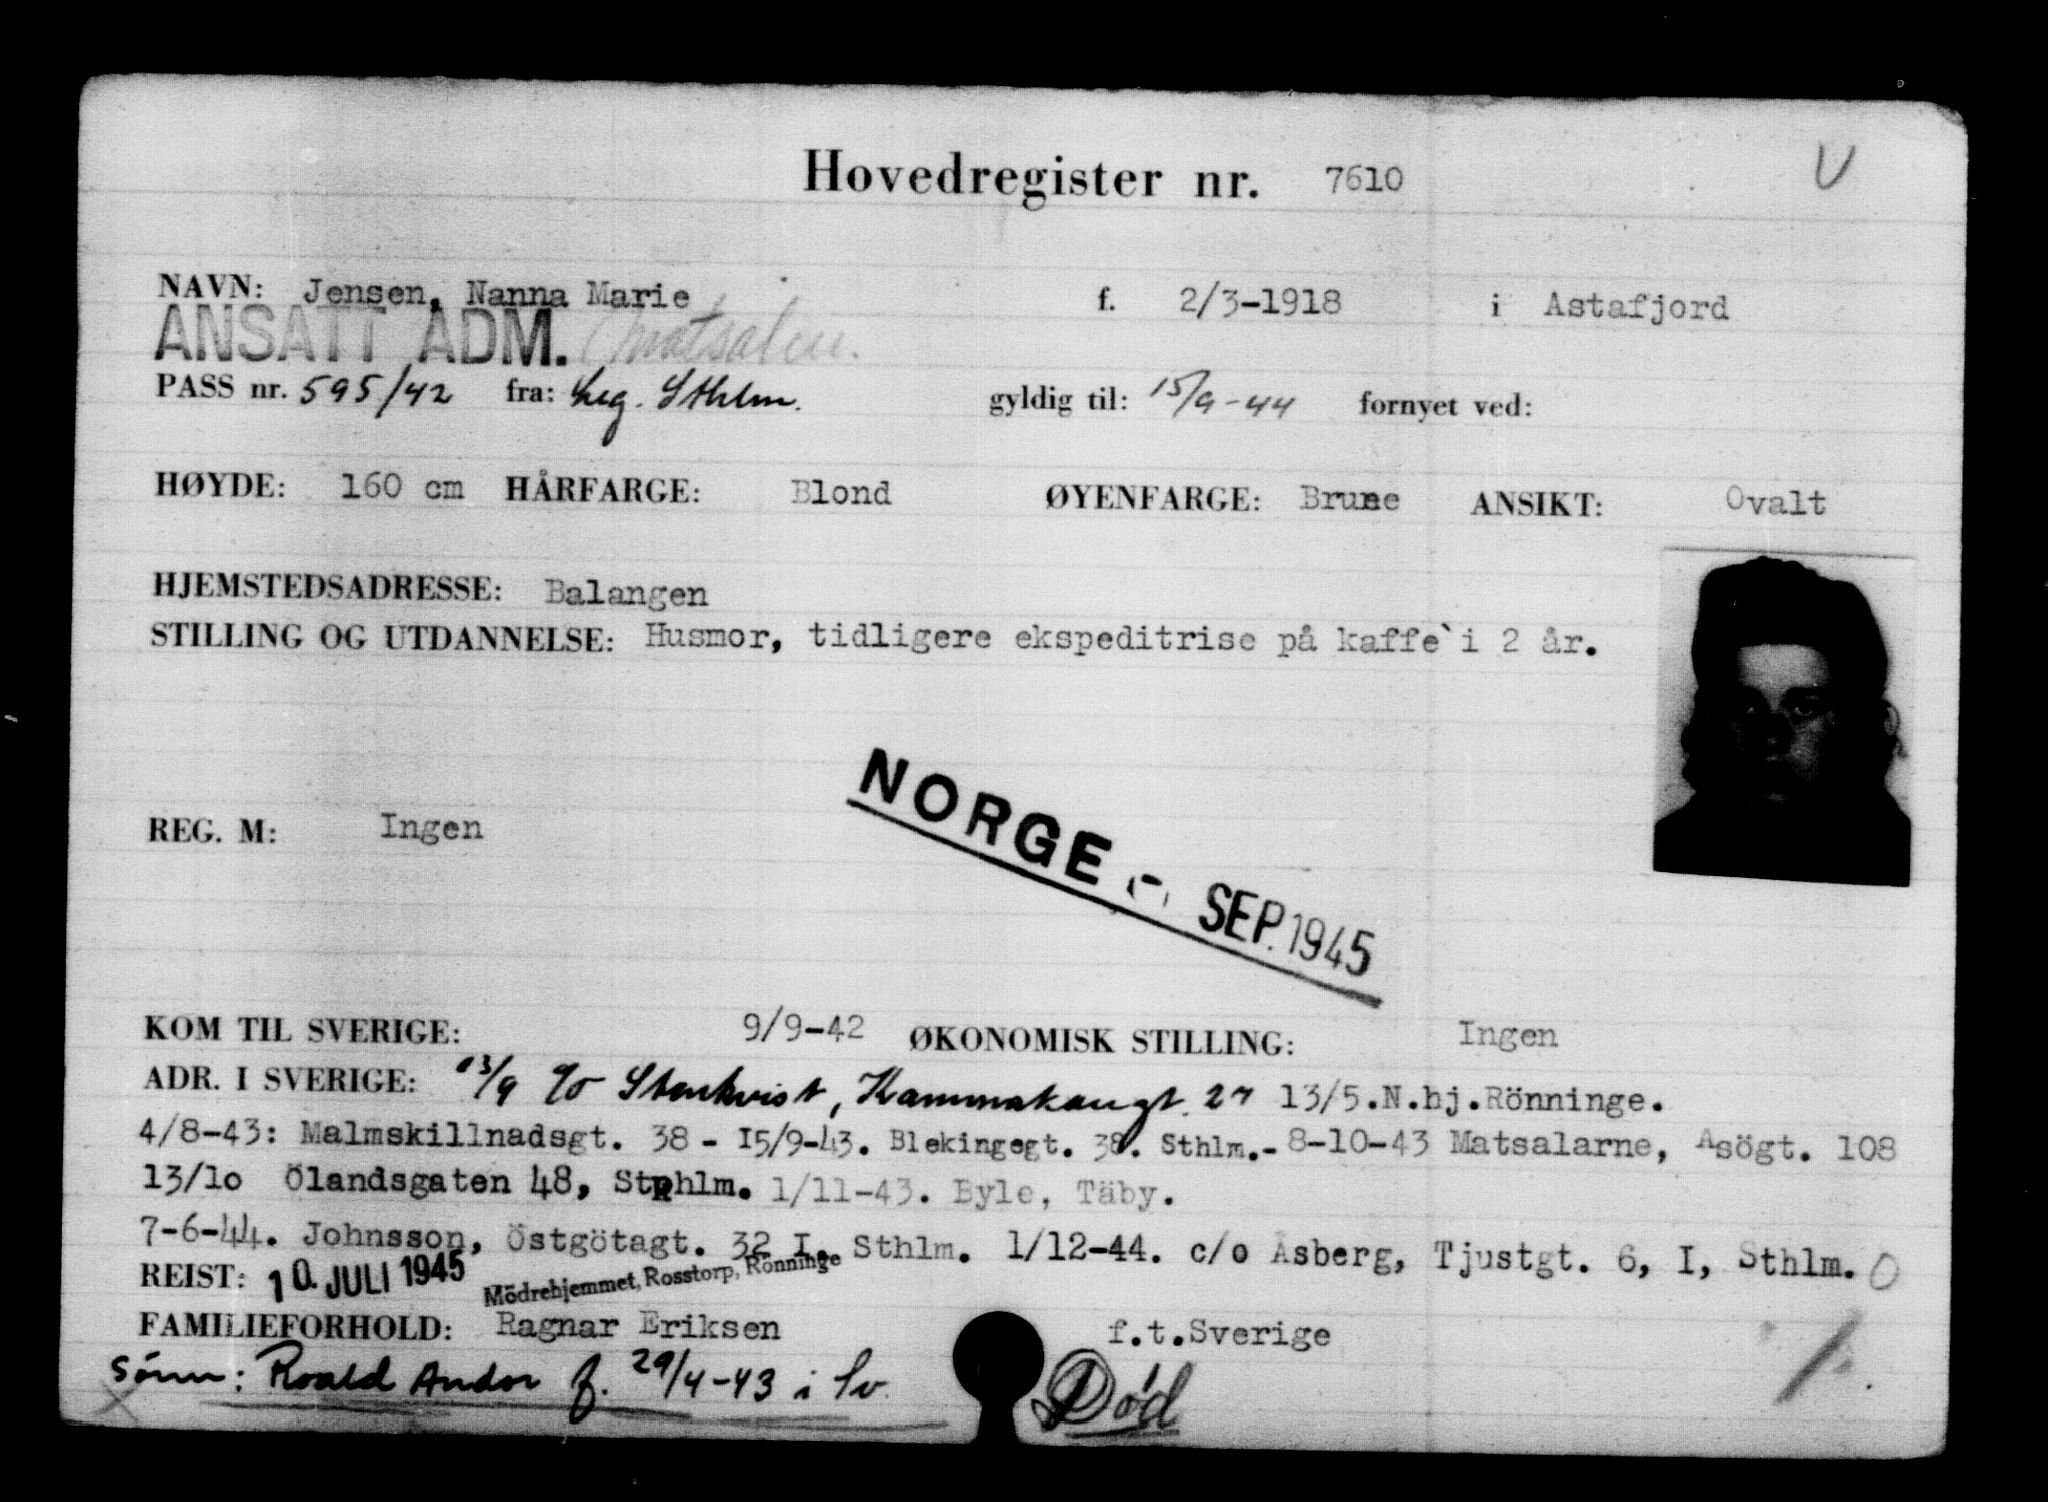 Hovedregister nr. 7610
NAVN: Jensen, Nanna Marie f. 2/3-1918 i Astafjord
ANSATT ADM. matsalen.
PASS nr. 595/42 fra: Leg. Sthlm. gyldig til: 15/9-44 fornyet ved:
HØYDE: 160 cm HÅRFARGE: Blond ØYENFARGE: Brune ANSIKT: Ovalt
HJEMSTEDSADRESSE: Balangen
STILLING OG UTDANNELSE: Husmor, tidligere ekspeditrise på kaffe`i 2 år.
REG. M: Ingen
NORGE - SEP. 1945
KOM TIL SVERIGE: 9/9-42 ØKONOMISK STILLING: Ingen
ADR. I SVERIGE: 13/9 c/o Stenkvist, Kammakaregt. 27 13/5.N.hj.Rönninge.
4/8-43: Malmskillnadsgt. 38 - 15/9-43. Blekingegt. 38. Sthlm.- 8-10-43 Matsalarne, Asögt. 108
13/10 Ölandsgaten 48, Sthlm. 1/11-43. Byle, Täby.
7-6-44. Johnsson, Östgötagt. 32 I. Sthlm. 1/12-44. c/o Åsberg, Tjustgt. 6, I, Sthlm. O
REIST: 10. JULI 1945 Mödrehjemmet, Rosstorp, Rönninge
FAMILIEFORHOLD: Ragnar Eriksen f.t.Sverige
Sönn: Roald Andor f. 29/4-43 i Sv. Död